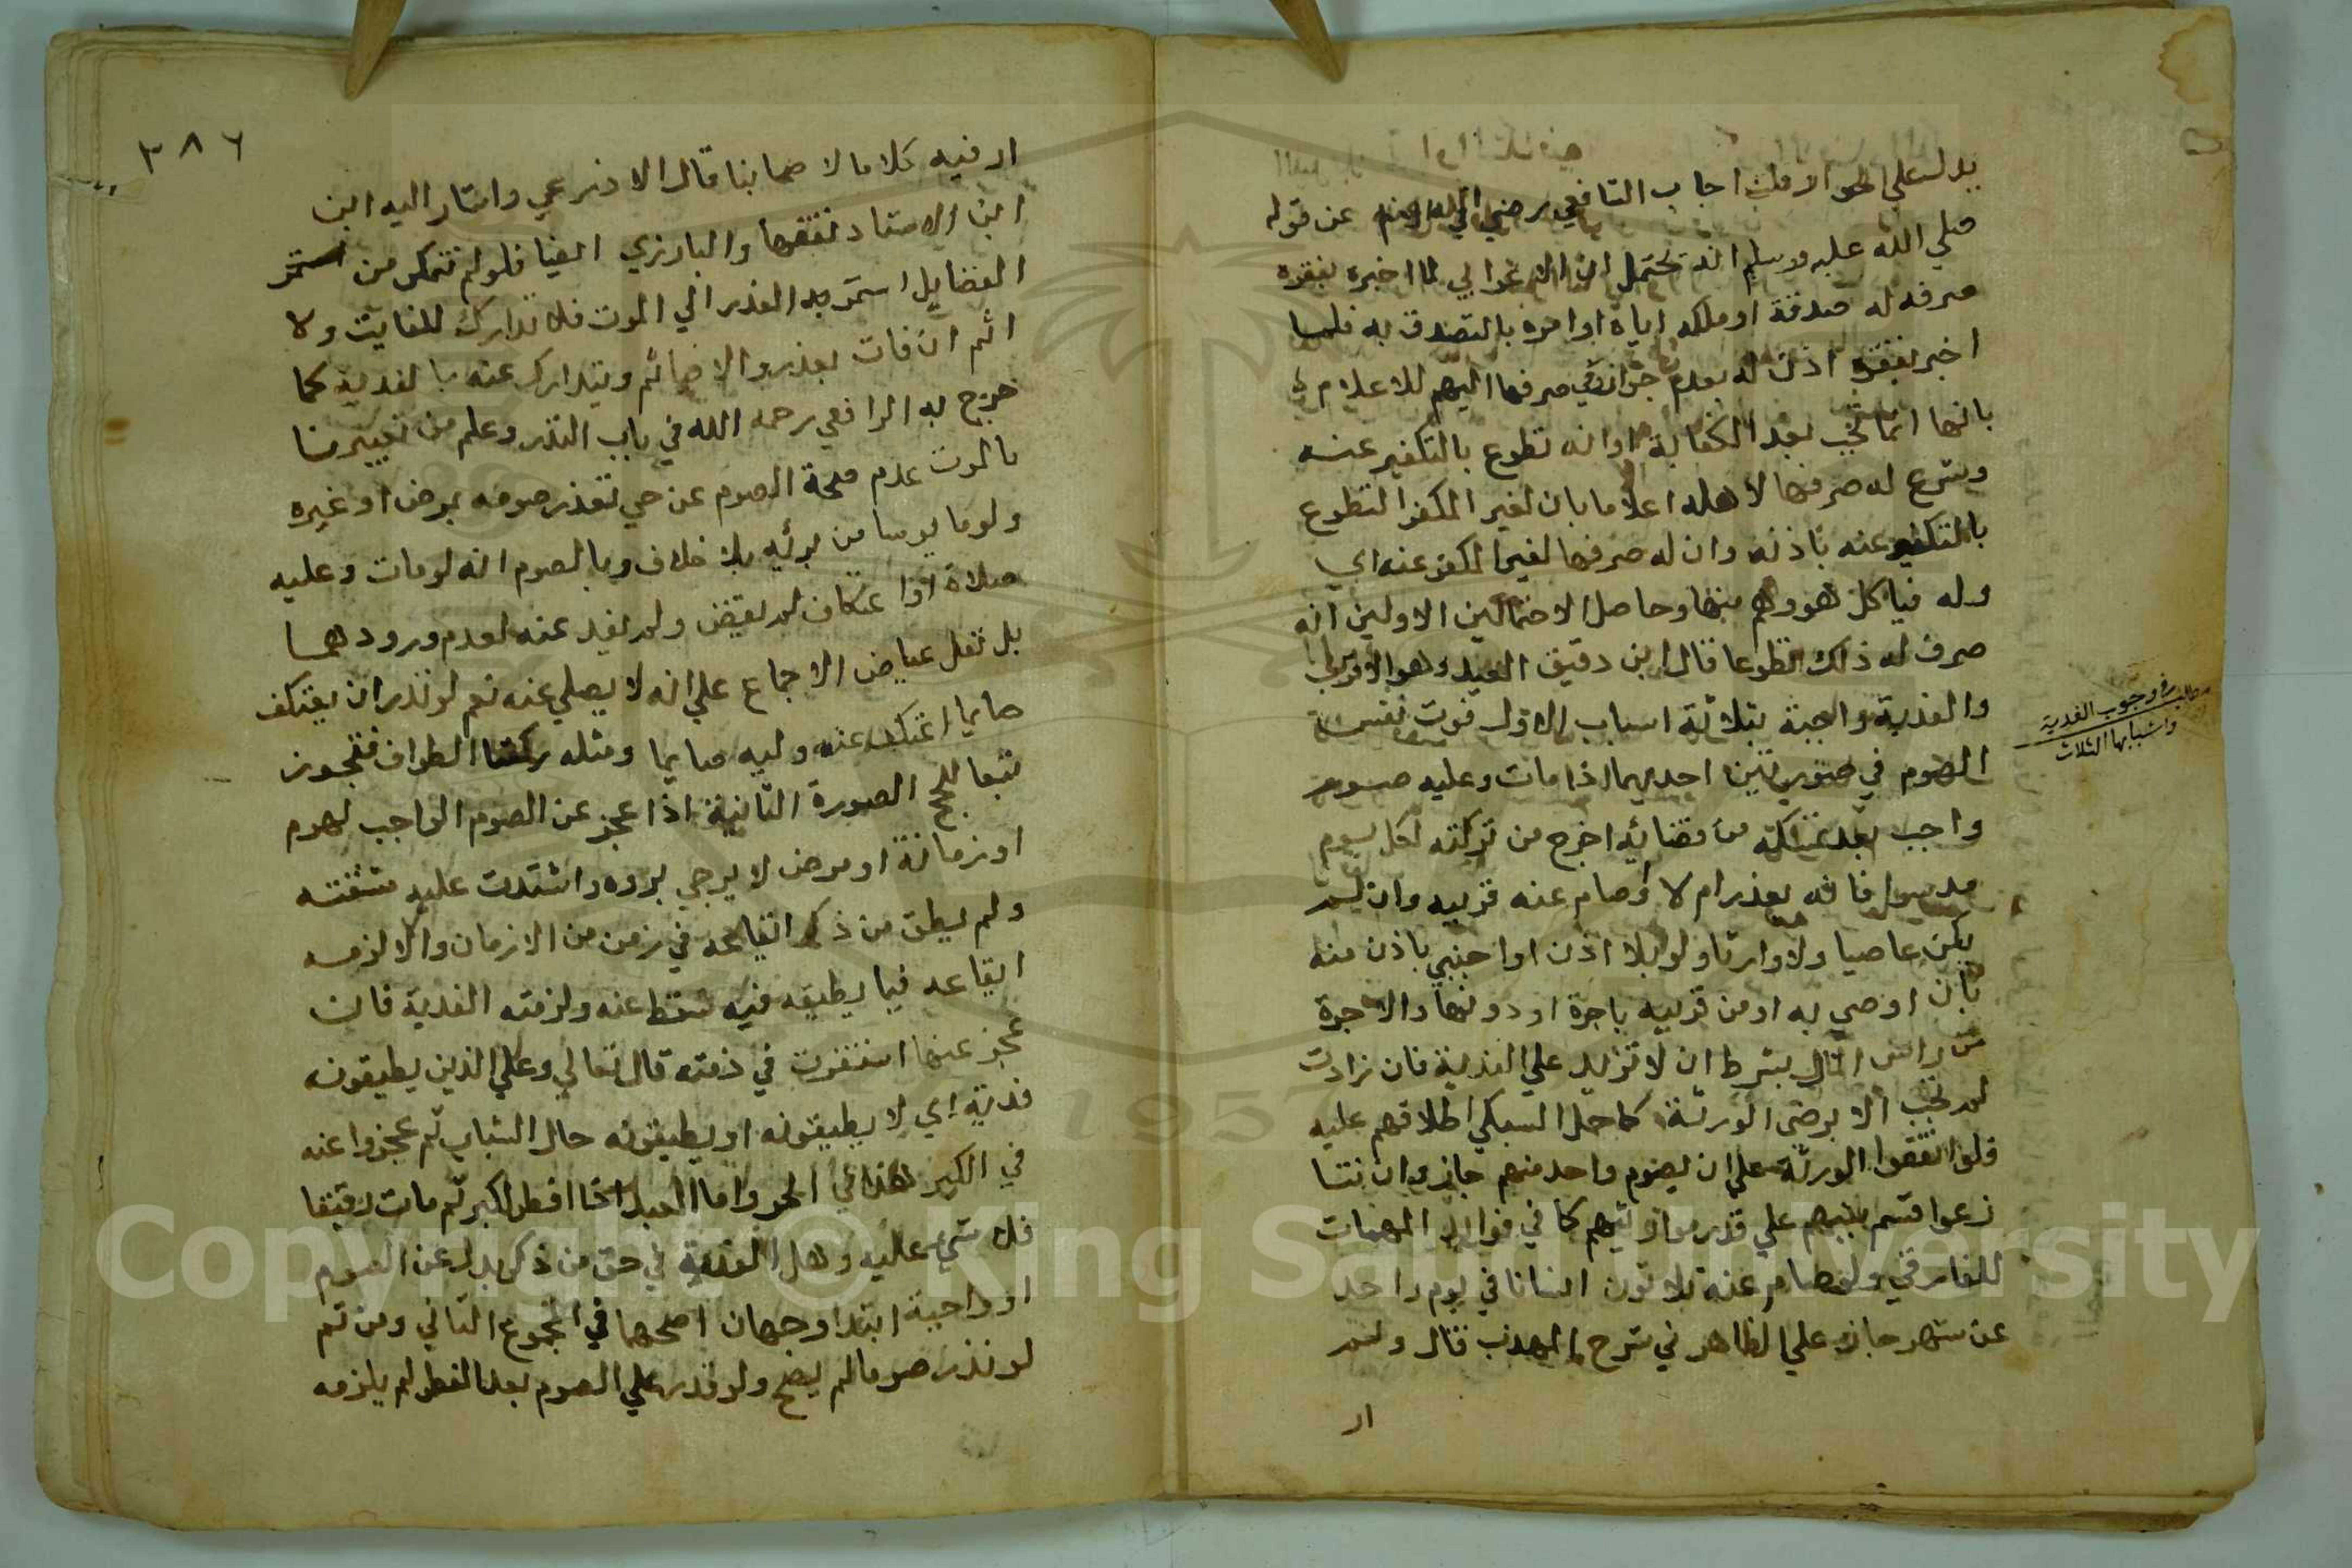 يدل علي نحو الاملت اجاب الشافعي رضي الله عنه عن قوله
صلي الله عليه وسلم انه يحتمل ان الاعرابي لما اخبره بفقره
صرفه له صدقة او ملكه اياه او امره بالتصدق به فلما
اخبر بفقره اذن له بعدم جواز صرفها اليهم للاعلام
بانها انما تجب بعد الكفاية او انه تطوع بالتكفير عنه
وشرع له صرفها لاهله اعلاما بان لغير المكفر التطوع
بالتكفير عنه باذنه وان له صرفها لغير المكفر عنه اي
وله فياكل هو وهم منها وحاصل الاحتمالين الاولين انه
صرف له ذلك تطوعا قال ابن دقيق العيد وهو الاقرب
والفدية واجبة بثلاثة اسباب الاول فوت نفس
الصوم في صورتين احديهما اذا مات وعليه صوم
واجب بعد تمكنه من قضائه اخرج من تركته لكل يوم
مد سوا فاته بعذر ام لا او صام عنه قريبه وان لم
يكن عاصيا ولا وارثا ولو بلا اذن او اجنبي باذن منه
بان اوصي به او من قريبه باجرة او دونها والاجرة
من راس المال بشرط ان لا تزيد علي الفدية فان زادت
لم تجب الا برضي الورثة كما حمل السبكي اطلاقهم عليه
فلو اتفقوا الورثة علي ان يصوم واحد منهم جاز وان تنا
زعوا قسم بينهم علي قدر مواريثهم كما في فوائد المهمات
للفارقي ولو صام عنه ثلاثون انسانا في يوم واحد
عن شهر جاز علي الظاهر في شرح المهذب قال ولم
ار
مطلب في وجوب الفدية
واسبابها الثلاث
٣٨٦
ار فيه كلاما لاصحابنا قال الاذرعي واشار اليه ابن
ابن الاستاد تفقها والبارزي ايضا فلو لم تتمكن من استمر
القضا بل استمر به العذر الي الموت فلا تدارك للفايت ولا
اثم ان فات بعذر والا ضائم ويتدارك عنه بالفدية كما
خرج به الرافعي رحمه الله في باب النذر وعلم من تعبيرنا
بالموت عدم صحة الصوم عن حي تعذر صومه بمرض او غيره
ولو مايوسا من برئه بلا خلاف وبالصوم انه لو مات وعليه
صلاة او اعتكاف لم يقض ولم يفد عنه لعدم ورودهما
بل نقل عياض الاجماع علي انه لا يصلي عنه نعم لو نذر ان يعتكف
صايما اعتكف عنه وليه صايما ومثله ركعتا الطواف فتجوز
تبعا للحج الصورة الثانية اذا عجز عن الصوم الواجب لهرم
او زمانة او مرض لا يرجي بروه واشتدت عليه مشقته
ولم يطق من ذكر ايقاعه في زمن من الازمان والا لزمه
ايقاعه فيما يطيقه فيه سقط عنه ولزمته الفدية فان
عجز عنها استقرت في ذمته قال تعالي وعلي الذين يطيقونه
فدية اي لا يطيقونه او يطيقونه حال الشباب ثم عجزوا عنه
في الكبر هذا في الحر واما العبد اذا افطر لكبر ثم مات رقيقا
فلا شي عليه وهل الفدية في حق من ذكر بدل عن الصوم
او واجبة ابتدا وجهان اصحهما في المجموع الثاني ومن ثم
لو نذر صوما لم يصح ولو قدر علي الصوم بعد الفطر لم يلزمه
Copyright © King Saud University
1957